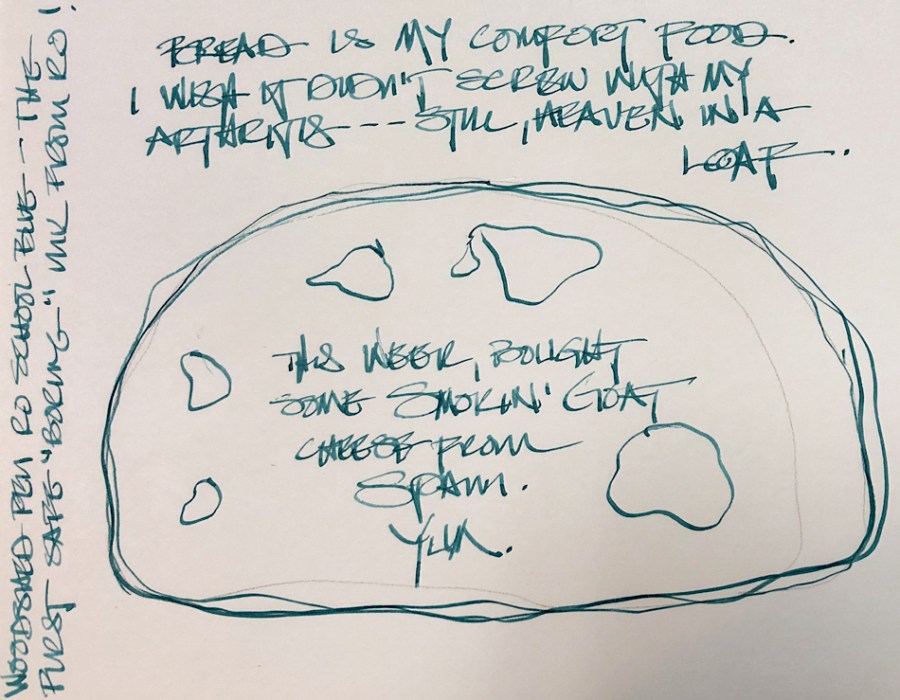 BREAD IS MY COMFORT FOOD.
I WISH IT DIDN'T SCREW WITH MY
ARTHRITIS --- STILL, HEAVEN IN A
LOAF.
THIS WEEK, BOUGHT
SOME SMOKIN' GOAT
CHEESE FROM
SPAIN.
YUM.
PEN RO SCHOOL BLUE -- THE
FIRST SAFE "BORING" INK FROM RO!